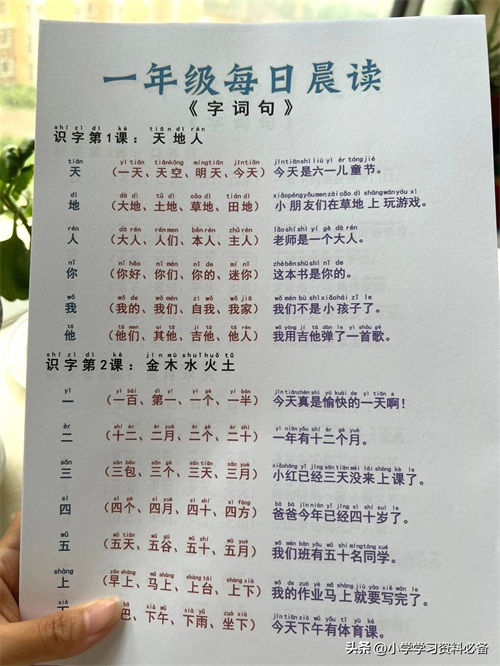 一年级每日晨读
《字词句》
shí zì dì kè tiān dì rén
识字第1课：天地人
tiān yì tiān tiānkōng míngtiān jīntiān jīntiānshì liù yī ér tóng jié
天 （一天、天空、明天、今天）今天是六一儿童节。
dì dà dì tǔ dì cǎo dì tián dì xiǎopéngyǒumen zài cǎo dì shàngwányóu xì
地 （大地、土地、草地、田地）小朋友们在草地上玩游戏。
rén dà rén rén men běn rén zhǔ rén lǎo shī shì yí gè dà rén
人 （大人、人们、本人、主人）老师是一个大人。
nǐ nǐ hǎo nǐ men nǐ de mí nǐ zhè běn shū shì nǐ de
你 （你好、你们、你的、迷你）这本书是你的。
wǒ wǒ de wǒ men zì wǒ wǒ jiā wǒ men bú shì xiǎo hái zi le
我 （我的、我们、自我、我家）我们不是小孩子了。
tā tā men qí tā jí tā tā rén wǒ yòng jí tā tán le yì shǒu gē
他 （他们、其他、吉他、他人）我用吉他弹了一首歌。
shí zì dì kè jīn mù shuǐ huǒ tǔ
识字第2课：金木水火土
yī yì bǎi dì yī yí gè yí bàn jīn tiān zhēn shì yú kuài de yì tiān a
一 （一百、第一、一个、一半）今天真是愉快的一天啊！
èr shí èr èr yuè èr gè èr shí yì nián yǒu shí èr gè yuè
二 （十二、二月、二个、二十）一年有十二个月。
sān sān bāo sān gè sān tiān sān yuè xiǎohóng yǐ jīng sān tiān méi lái shàng kè le
三 （三包、三个、三天、三月）小红已经三天没来上课了。
sì sì gè sì yuè sì shí sì fāng bà ba jīn nián yǐ jīng sì shí suì le
四 （四个、四月、四十、四方）爸爸今年已经四十岁了。
wǔ wǔ tiān wǔ gǔ wǔ shí wǔ yuè wǒ men bān yǒu wǔ shí míng tóng xué
五 （五天、五谷、五十、五月）我们班有五十名同学。
shàng zǎo shàng mǎ shàng shàng tái shàng xià wǒ de zuò yè mǎ shàng jiù yào xiě wán le
上 （早上、马上、上台、上下）我的作业马上就要写完了。
xià wǔ xià yǔ zuò xià jīn tiān xià wǔ yǒu tǐ yù kè
巴、下午、下雨、坐下）今天下午有体育课。
头条 @小学学习资料必备